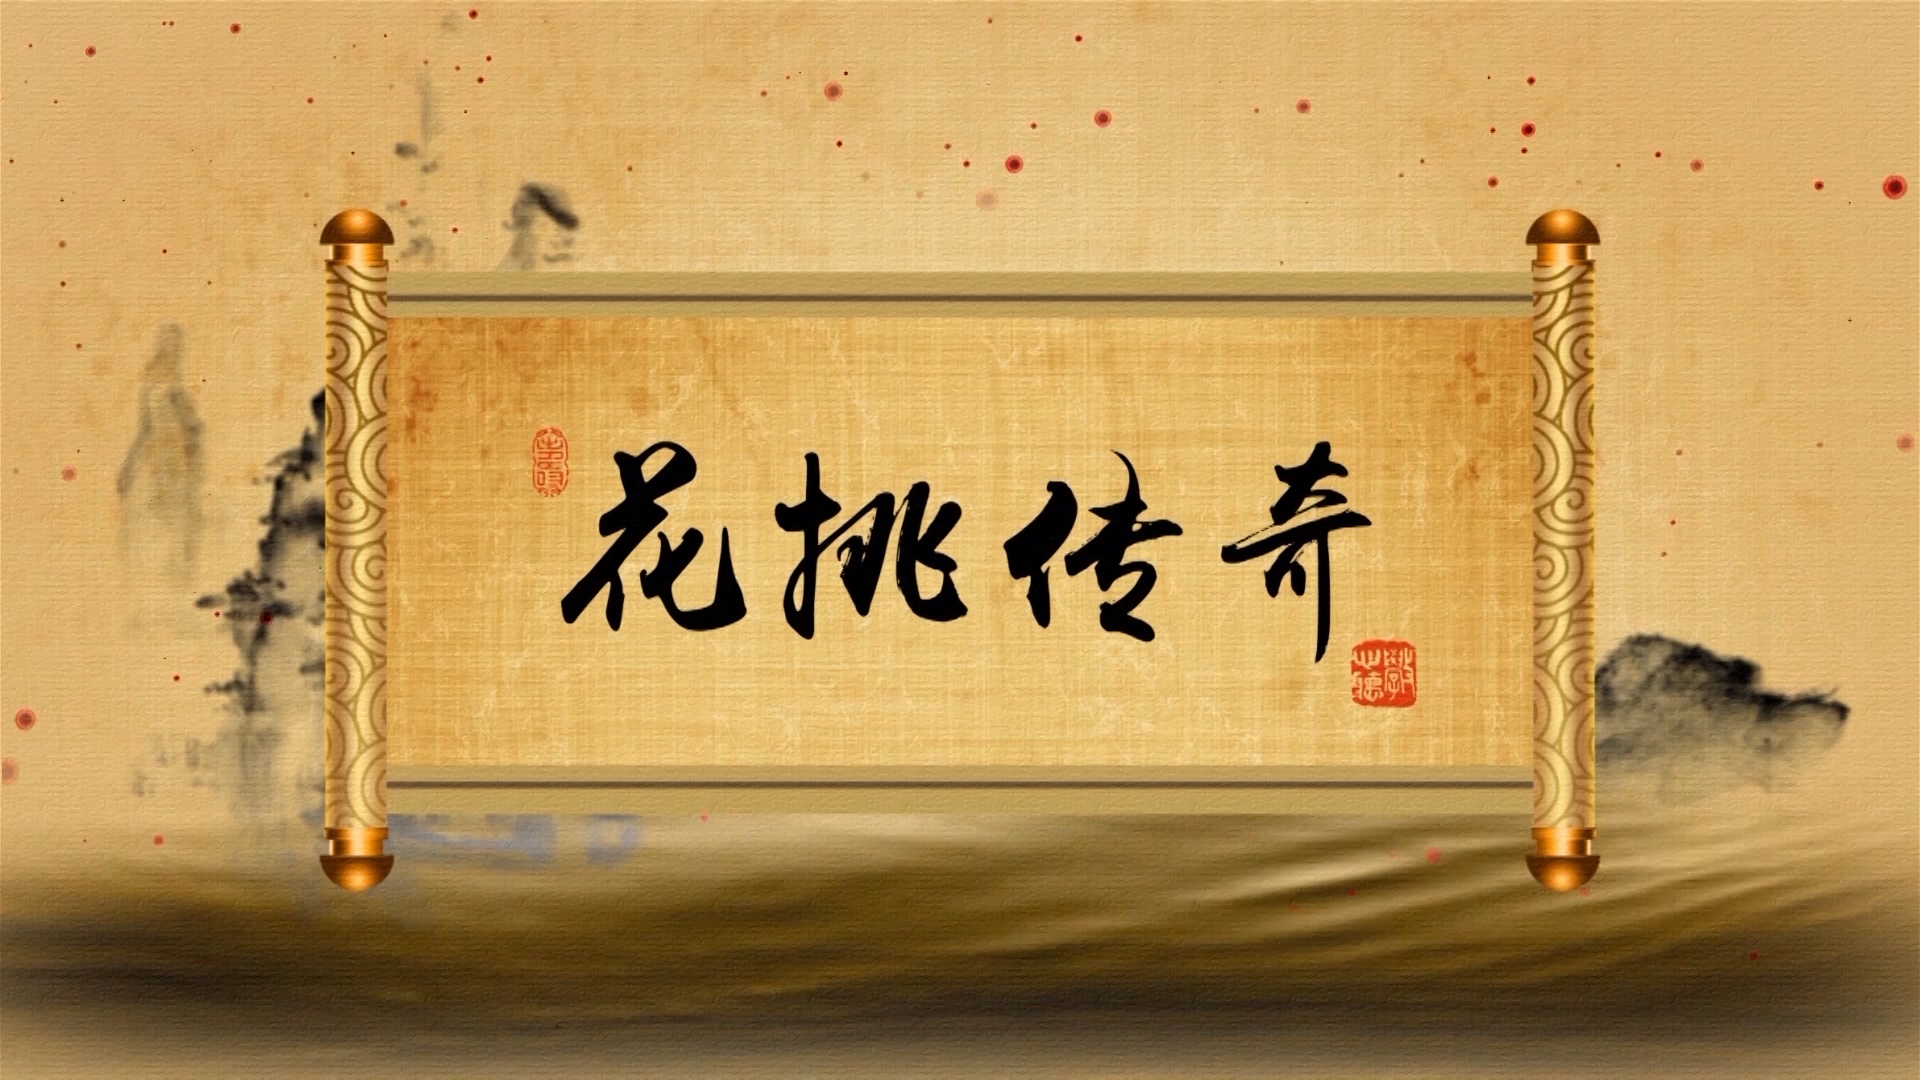 花挑传奇